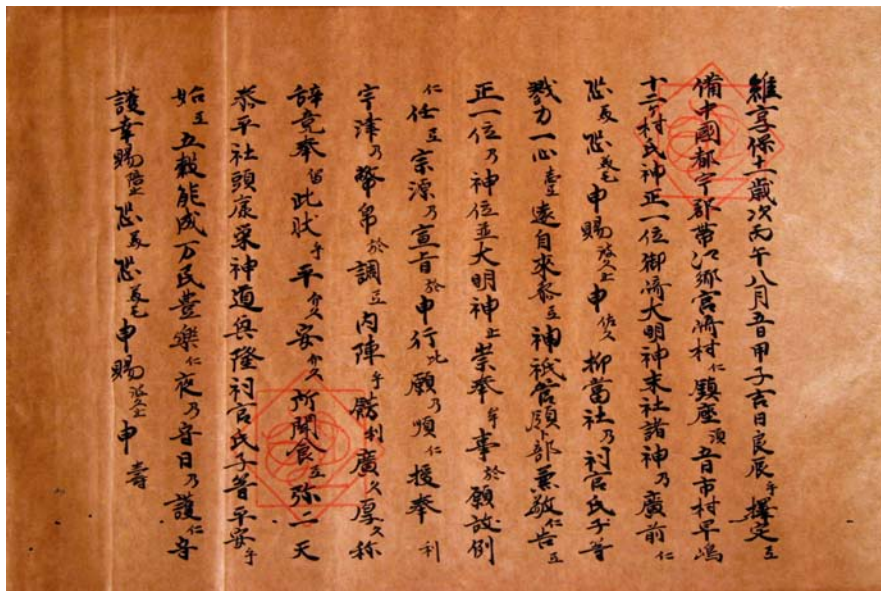 維享保十一歳次丙午八月五日甲子吉日良辰乎擇定弖
備中國都宇郡帯江郷宮崎村仁鎮座須五日市村早嶋
十二ヶ村氏神正一位御崎大明神末社諸神乃廣前仁
恐美恐美毛申賜波久止申佐久抑當社乃祠官氏子等
戮力一心弖遠自來黎弖神祇官領卜部兼敬仁告弖
正一位乃神位並大明神止崇奉牟事於願故例
仁任弖宗源乃宣旨於申行比願乃順仁授奉利
宇津乃幣帛於調弖内陣乎餝利廣久厚久称
辞竟奉留此状乎平介久安介久所聞食弖弥一天
泰平社頭康栄神道興隆祠官氏子等平安乎
始弖五穀能成万民豊樂仁夜乃守日乃護仁守
護幸賜陪止恐美恐美毛申賜波久止申 寿